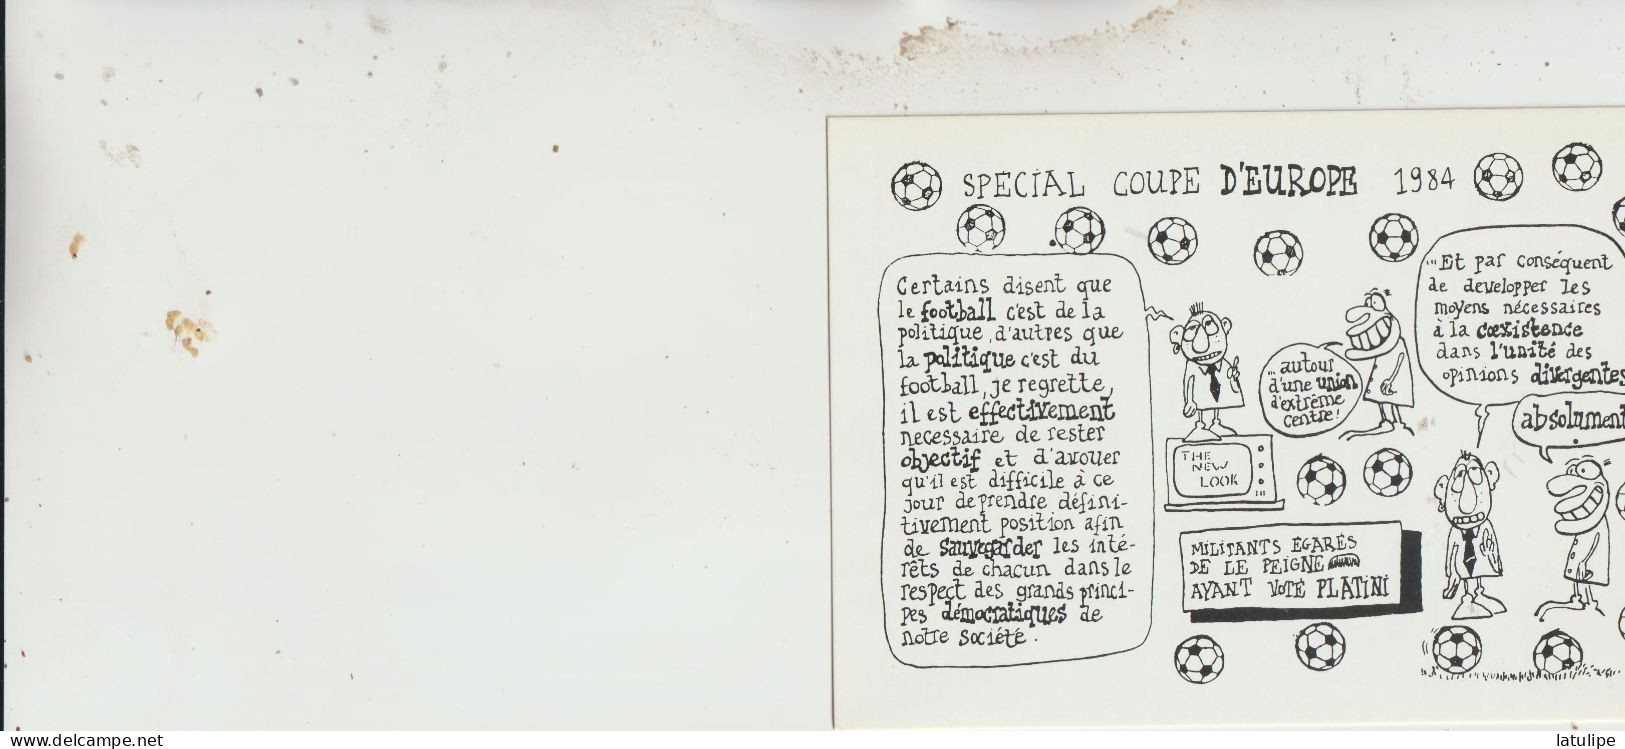 SPECIAL COUPE D'EUROPE 1984
Certains disent que
le football c'est de la
politique, d'autres que
la politique c'est du
football, je regrette,
il est effectivement
necessaire de rester
objectif et d'avouer
qu'il est difficile à ce
jour de prendre défini-
tivement position afin
de sauvegarder les inté-
rêts de chacun dans le
respect des grands princi-
pes démocratiques de
notre société.
...autour
d'une union
d'extrême
centre!
...Et par conséquent
de developper les
moyens nécessaires
à la coexistence
dans l'unité des
opinions divergentes
absolument
THE
NEW
LOOK
MILITANTS ÉGARÉS
DE LE PEIGNE
AYANT VOTÉ PLATINI
www.delcampe.net
latulipe